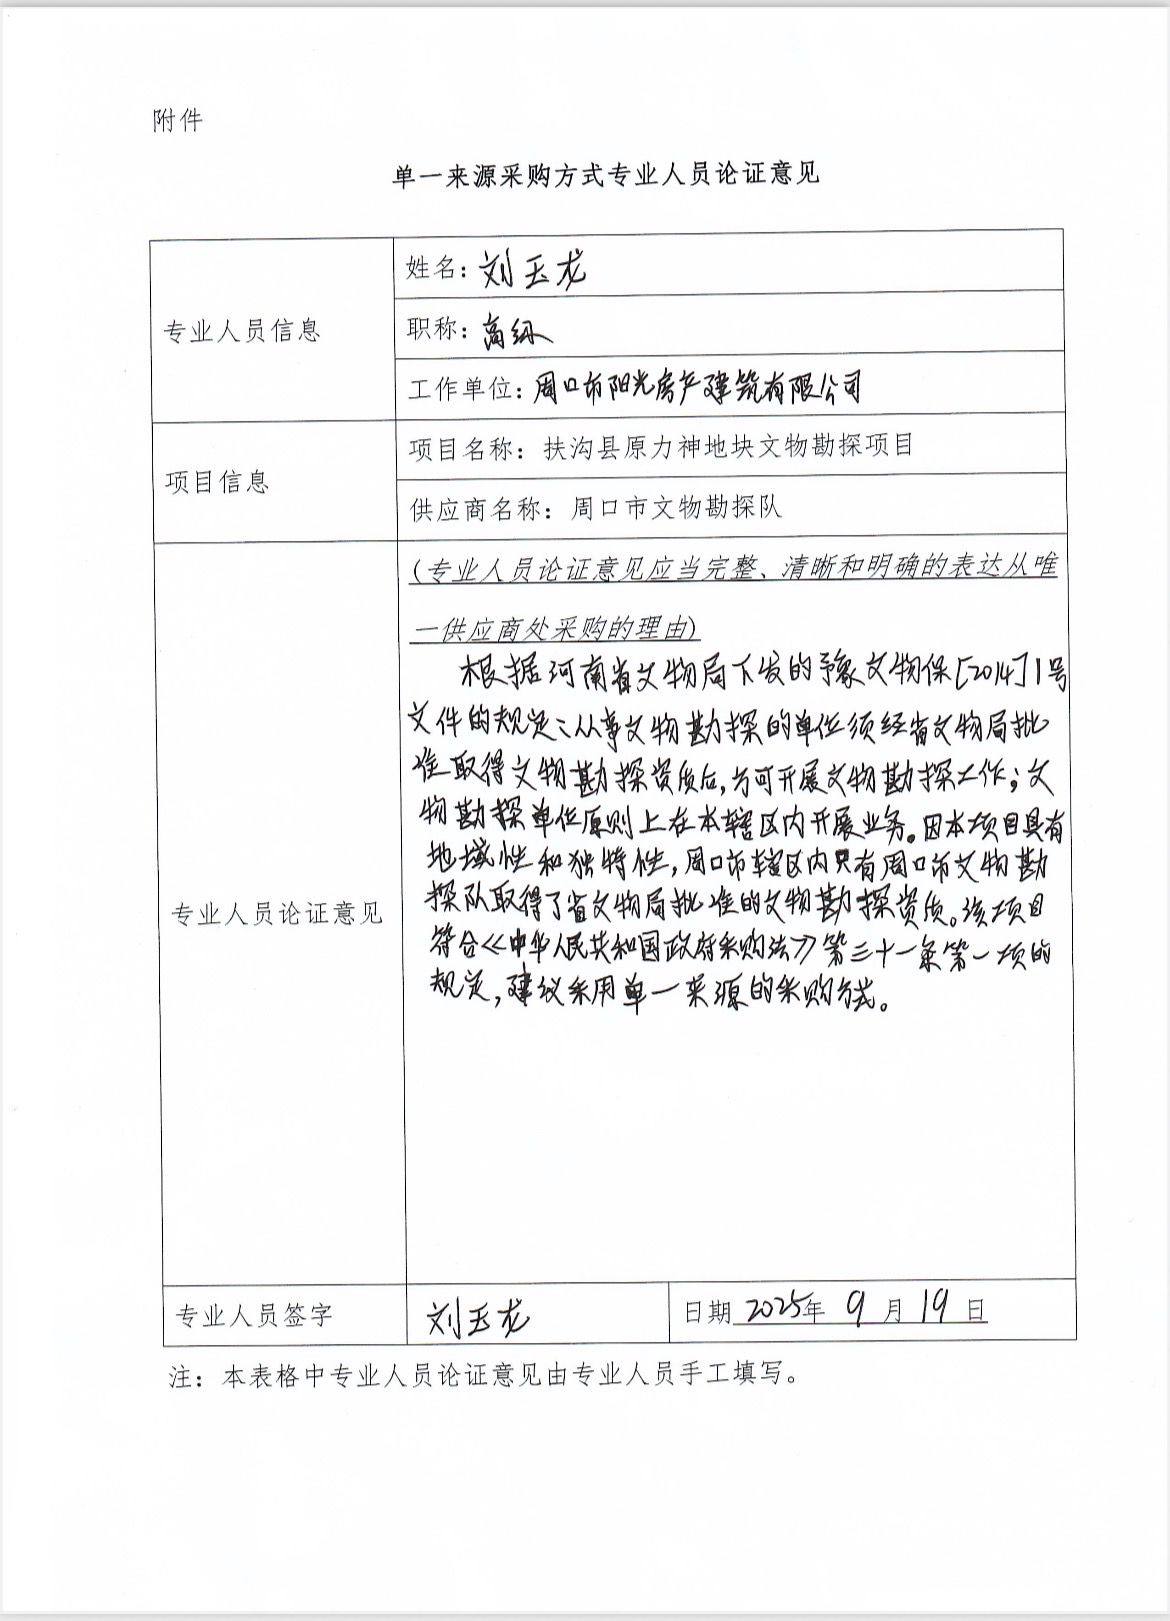 附件
单一来源采购方式专业人员论证意见
专业人员信息
姓名：刘玉龙
职称：高级
工作单位：周口市阳光房产建筑有限公司
项目信息
项目名称：扶沟县原力神地块文物勘探项目
供应商名称：周口市文物勘探队
专业人员论证意见
(专业人员论证意见应当完整、清晰和明确的表达从唯
一供应商处采购的理由)
根据河南省文物局下发的豫文物保[2014]1号
文件的规定：从事文物勘探的单位须经省文物局批
准取得文物勘探资质后，方可开展文物勘探工作；文
物勘探单位原则上在本辖区内开展业务。因本项目具有
地域性和独特性，周口市辖区内只有周口市文物勘
探队取得了省文物局批准的文物勘探资质。该项目
符合《中华人民共和国政府采购法》第三十一条第一项的
规定，建议采用单一来源的采购方式。
专业人员签字
刘玉龙
日期 2025年 9 月 19 日
注：本表格中专业人员论证意见由专业人员手工填写。